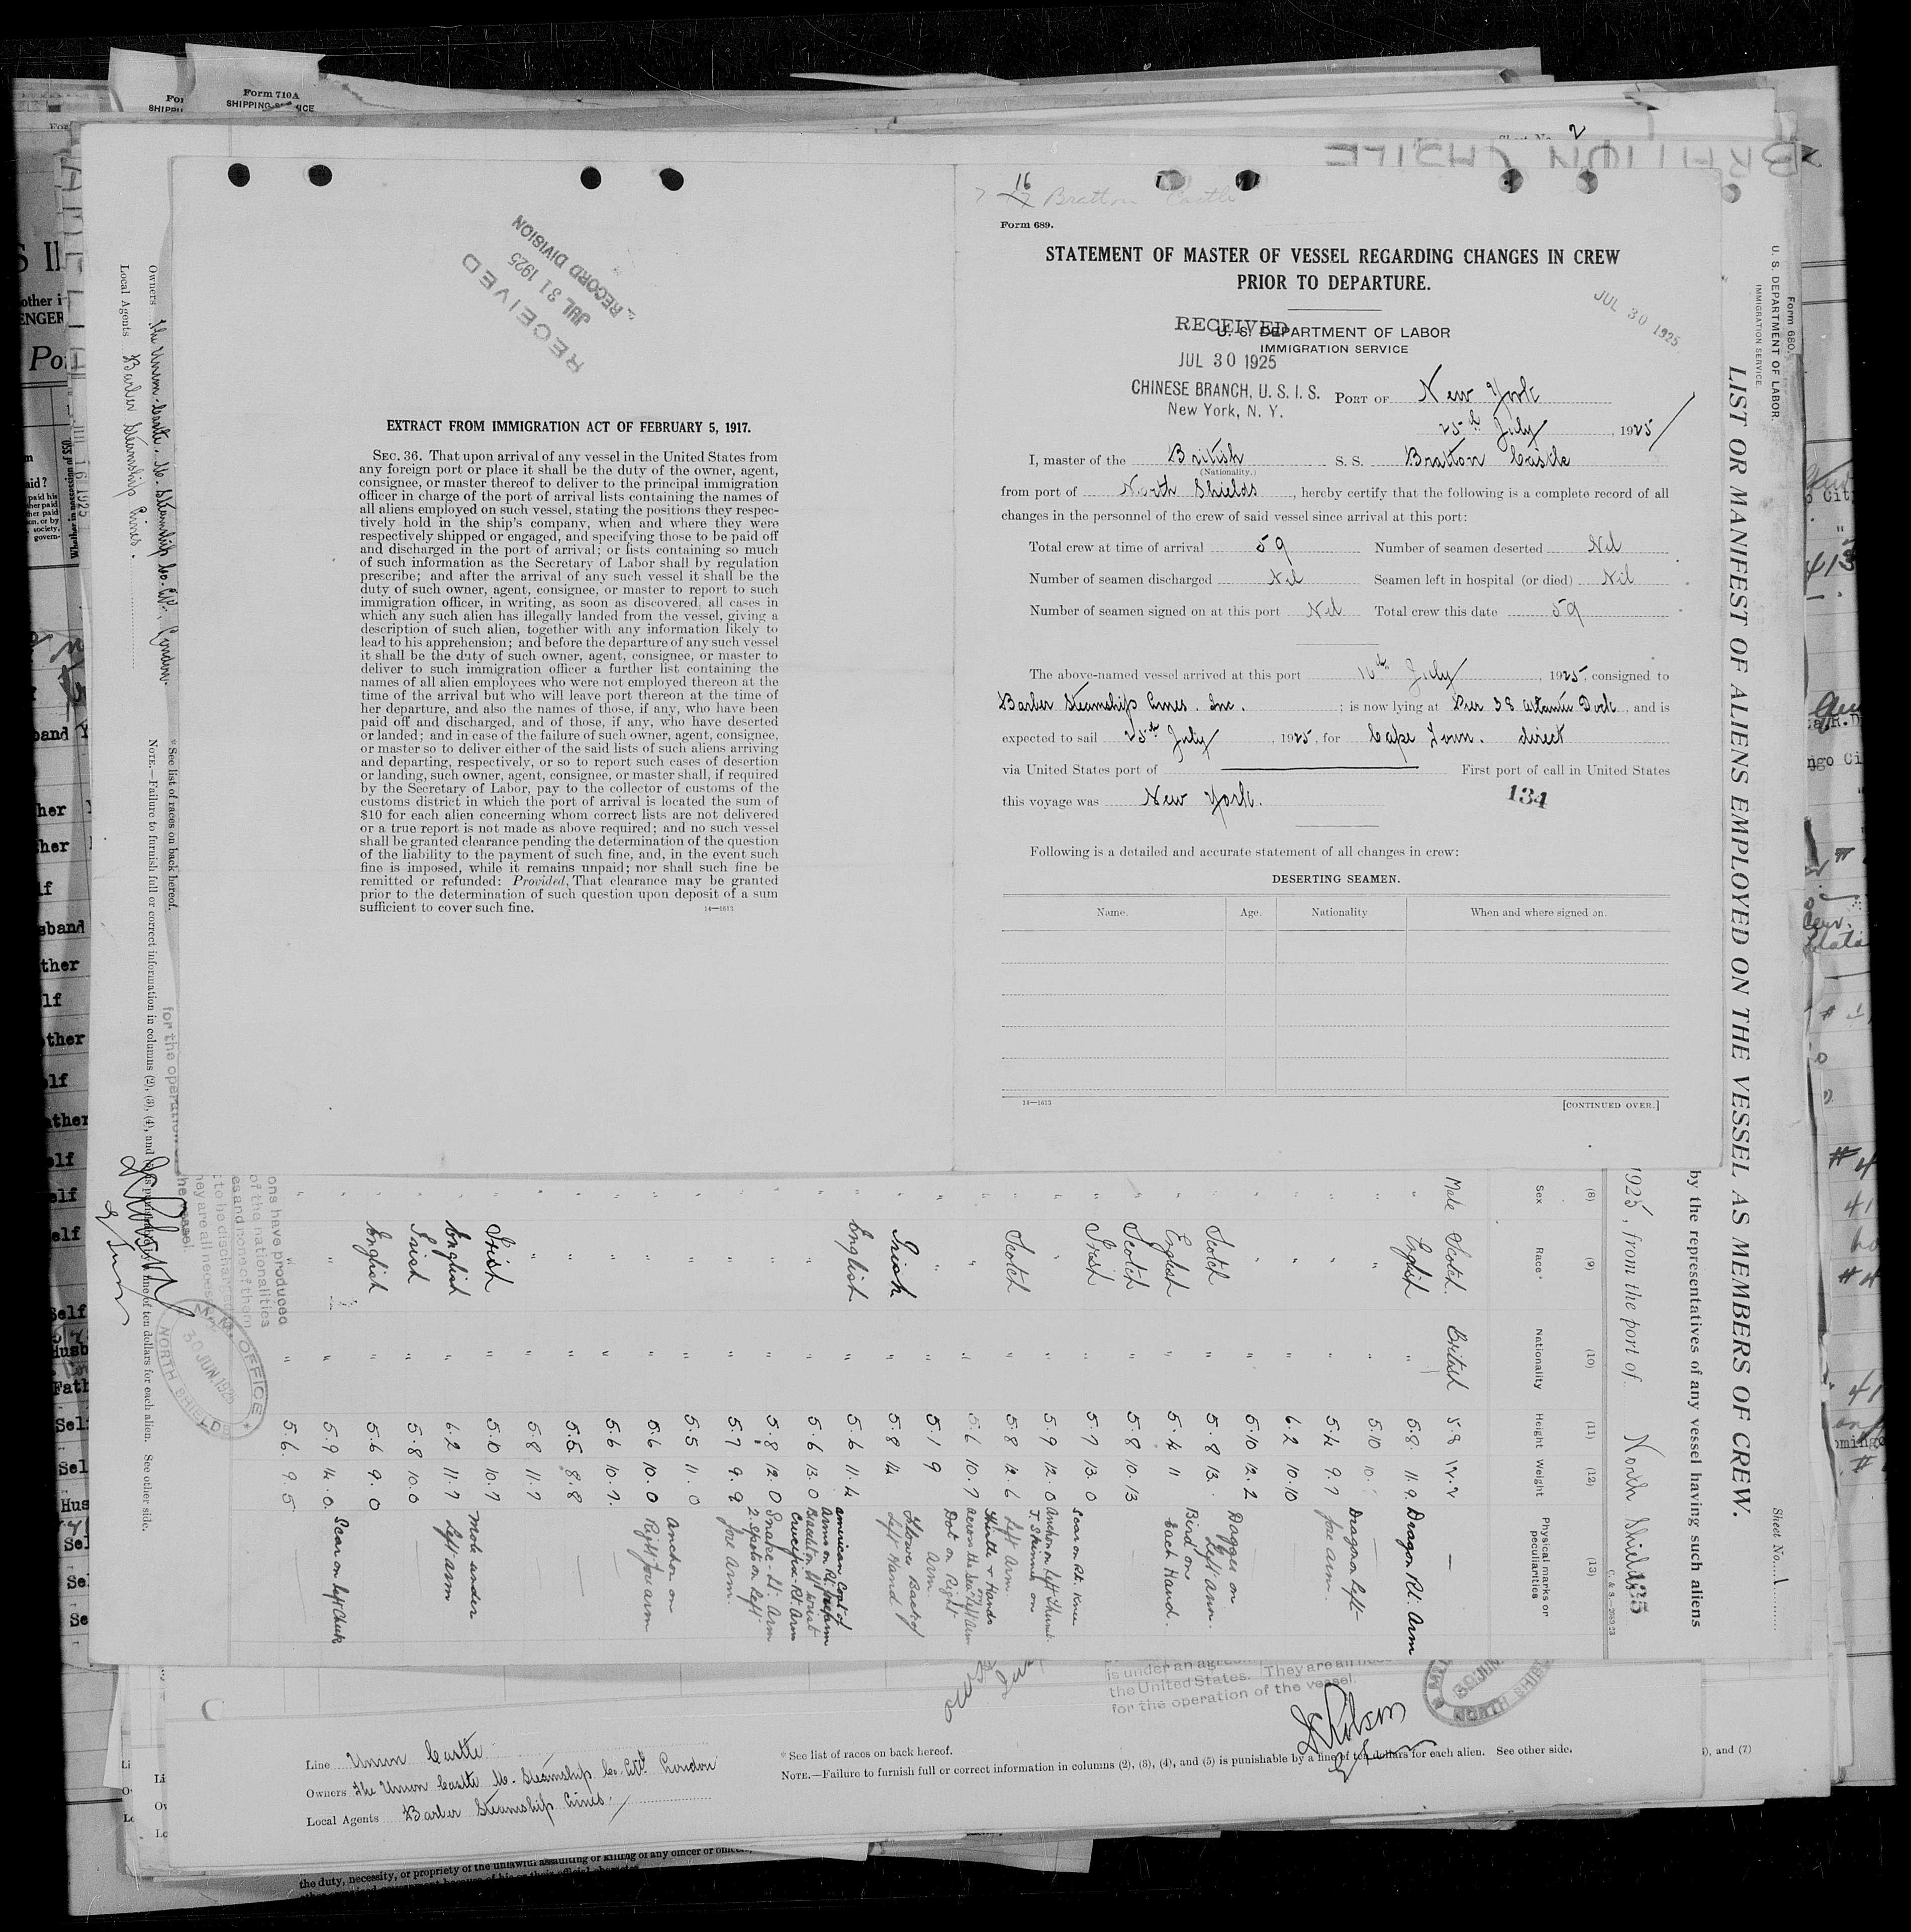 Form 710A
SHIPPING SERVICE
Sheet No. 2
BRATTON CASTLE
16
Bratton Castle
RECEIVED
JUL 31 1925
RECORD DIVISION
EXTRACT FROM IMMIGRATION ACT OF FEBRUARY 5, 1917.
SEC. 36. That upon arrival of any vessel in the United States from
any foreign port or place it shall be the duty of the owner, agent,
consignee, or master thereof to deliver to the principal immigration
officer in charge of the port of arrival lists containing the names of
all aliens employed on such vessel, stating the positions they respec-
tively hold in the ship's company, when and where they were
respectively shipped or engaged, and specifying those to be paid off
and discharged in the port of arrival; or lists containing so much
of such information as the Secretary of Labor shall by regulation
prescribe; and after the arrival of any such vessel it shall be the
duty of such owner, agent, consignee, or master to report to such
immigration officer, in writing, as soon as discovered, all cases in
which any such alien has illegally landed from the vessel, giving a
description of such alien, together with any information likely to
lead to his apprehension; and before the departure of any such vessel
it shall be the duty of such owner, agent, consignee, or master to
deliver to such immigration officer a further list containing the
names of all alien employees who were not employed thereon at the
time of the arrival but who will leave port thereon at the time of
her departure, and also the names of those, if any, who have been
paid off and discharged, and of those, if any, who have deserted
or landed; and in case of the failure of such owner, agent, consignee,
or master so to deliver either of the said lists of such aliens arriving
and departing, respectively, or so to report such cases of desertion
or landing, such owner, agent, consignee, or master shall, if required
by the Secretary of Labor, pay to the collector of customs of the
customs district in which the port of arrival is located the sum of
$10 for each alien concerning whom correct lists are not delivered
or a true report is not made as above required; and no such vessel
shall be granted clearance pending the determination of the question
of the liability to the payment of such fine, and, in the event such
fine is imposed, while it remains unpaid; nor shall such fine be
remitted or refunded: Provided, That clearance may be granted
prior to the determination of such question upon deposit of a sum
sufficient to cover such fine.
14—1613
Form 689.
STATEMENT OF MASTER OF VESSEL REGARDING CHANGES IN CREW
PRIOR TO DEPARTURE.
JUL 30 1925
U. S. DEPARTMENT OF LABOR
IMMIGRATION SERVICE
RECEIVED
JUL 30 1925
CHINESE BRANCH, U. S. I. S.
New York, N. Y.
PORT OF New York
25th July, 1925
I, master of the British S. S. Bratton Castle
(Nationality.)
from port of North Shields, hereby certify that the following is a complete record of all
changes in the personnel of the crew of said vessel since arrival at this port:
Total crew at time of arrival 59 Number of seamen deserted Nil
Number of seamen discharged Nil Seamen left in hospital (or died) Nil
Number of seamen signed on at this port Nil Total crew this date 59
The above-named vessel arrived at this port 16th July, 1925, consigned to
Barber Steamship Lines. Inc.; is now lying at Pier 38 Atlantic Dock, and is
expected to sail 25th July, 1925, for Cape Town. direct
via United States port of First port of call in United States
this voyage was New York.
134
Following is a detailed and accurate statement of all changes in crew:
DESERTING SEAMEN.
Name. Age. Nationality When and where signed on.
14—1613
[CONTINUED OVER.]
Form 680.
U. S. DEPARTMENT OF LABOR
IMMIGRATION SERVICE
LIST OR MANIFEST OF ALIENS EMPLOYED ON THE VESSEL AS MEMBERS OF CREW.
Sheet No. 1
by the representatives of any vessel having such aliens
1925, from the port of North Shields
135
(8) (9) (10) (11) (12) (13)
Sex Race* Nationality Height Weight Physical marks or peculiarities
Male Scotch British 5.8 12.2 —
" English " 5.8. 11.9 Dragon Rt. Arm
" " " 5.10 10.
" " " 5.4 9.7 Dragon Left fore arm.
" " " 6.2 10.10
" " " 5.10 12.2 Dagger on Left Arm.
" Scotch " 5.8 13. Bird on
" English " 5.4 11 each Hand.
" Scotch " 5.8 10.13
" Irish " 5.7 13.0 Scar on Rt. Knee
" " " 5.9 12.0 Anchor on left Thumb.
" Scotch " 5.8 12.6 Left Arm.
" " " 5.6 10.7 Thistle & Hands across the Sea Left Arm
" " " 5.1 9 Dot on Right Arm
" Irish " 5.8 14 Flower Back of Left Hand
" English " 5.6 11.4 American Coat of Arms on Rt forearm
" " " 5.6 13.0 Bracelet on Lt wrist Crucifix Rt. Arm
" " " 5.8 12.0 Snake Lt. Arm
" " " 5.7 9.9 2 Spots on Left fore Arm.
" " " 5.5 11.0
" " " 5.6 10.0 Anchor on Right fore arm
" " " 5.6 10.7.
" " " 5.5 8.8 —
" " " 5.8 11.7
" Irish " 5.10 10.7
" English " 6.2 11.7 Mole under Left arm
" Irish " 5.8 10.0
" English " 5.6 9.0
" " " 5.9 14.0. Scar on left Cheek
" " " 5.6. 9.5
Owners The Union-Castle M. Steamship Co. Ltd. London.
Local Agents Barber Steamship Lines.
* See list of races on back hereof.
NOTE.—Failure to furnish full or correct information in columns (2), (3), (4), and (5) is punishable by a fine of ten dollars for each alien. See other side.
OFFICE
30 JUN. 1925
NORTH SHIELDS
is under an agree
the United States. They are all nece
for the operation of the vessel.
Line Union Castle
Owners The Union Castle M. Steamship Co. Ltd. London
Local Agents Barber Steamship Lines.
* See list of races on back hereof.
NOTE.—Failure to furnish full or correct information in columns (2), (3), (4), and (5) is punishable by a fine of ten dollars for each alien. See other side.
the duty, necessity, or propriety of the unlawful assaulting or killing of any officer or